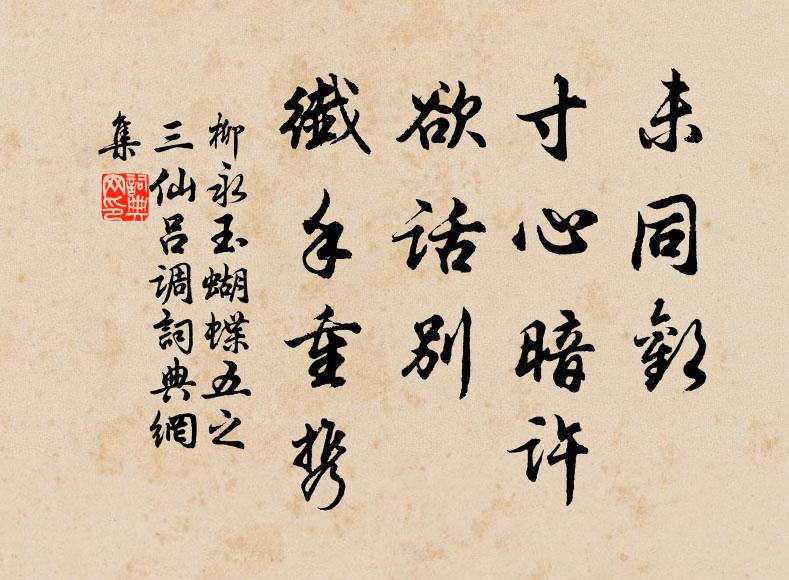 未同歡
寸心暗許
欲話別
纖手重攜
柳永玉蝴蝶五之
三仙呂調詞典網
集
詞典網印